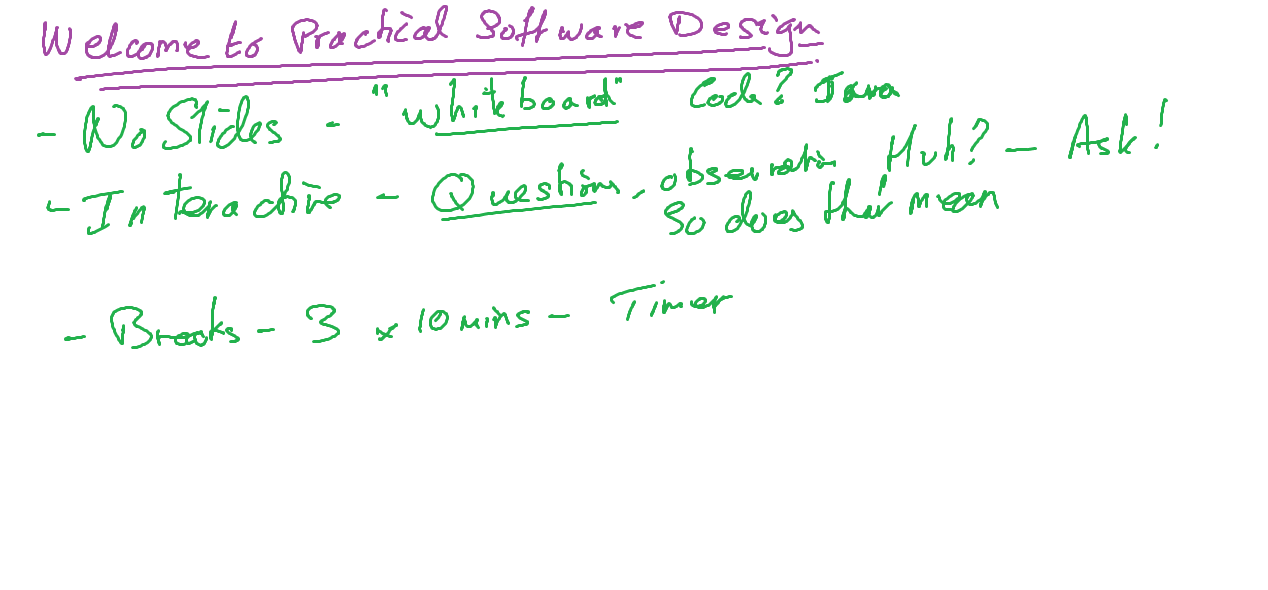 Welcome to Practical Software Design
- No Slides - "Whiteboard" Code? Java
- Interactive - Questions, observation Huh? - Ask!
So does that mean
- Breaks - 3 x 10 mins - Timer